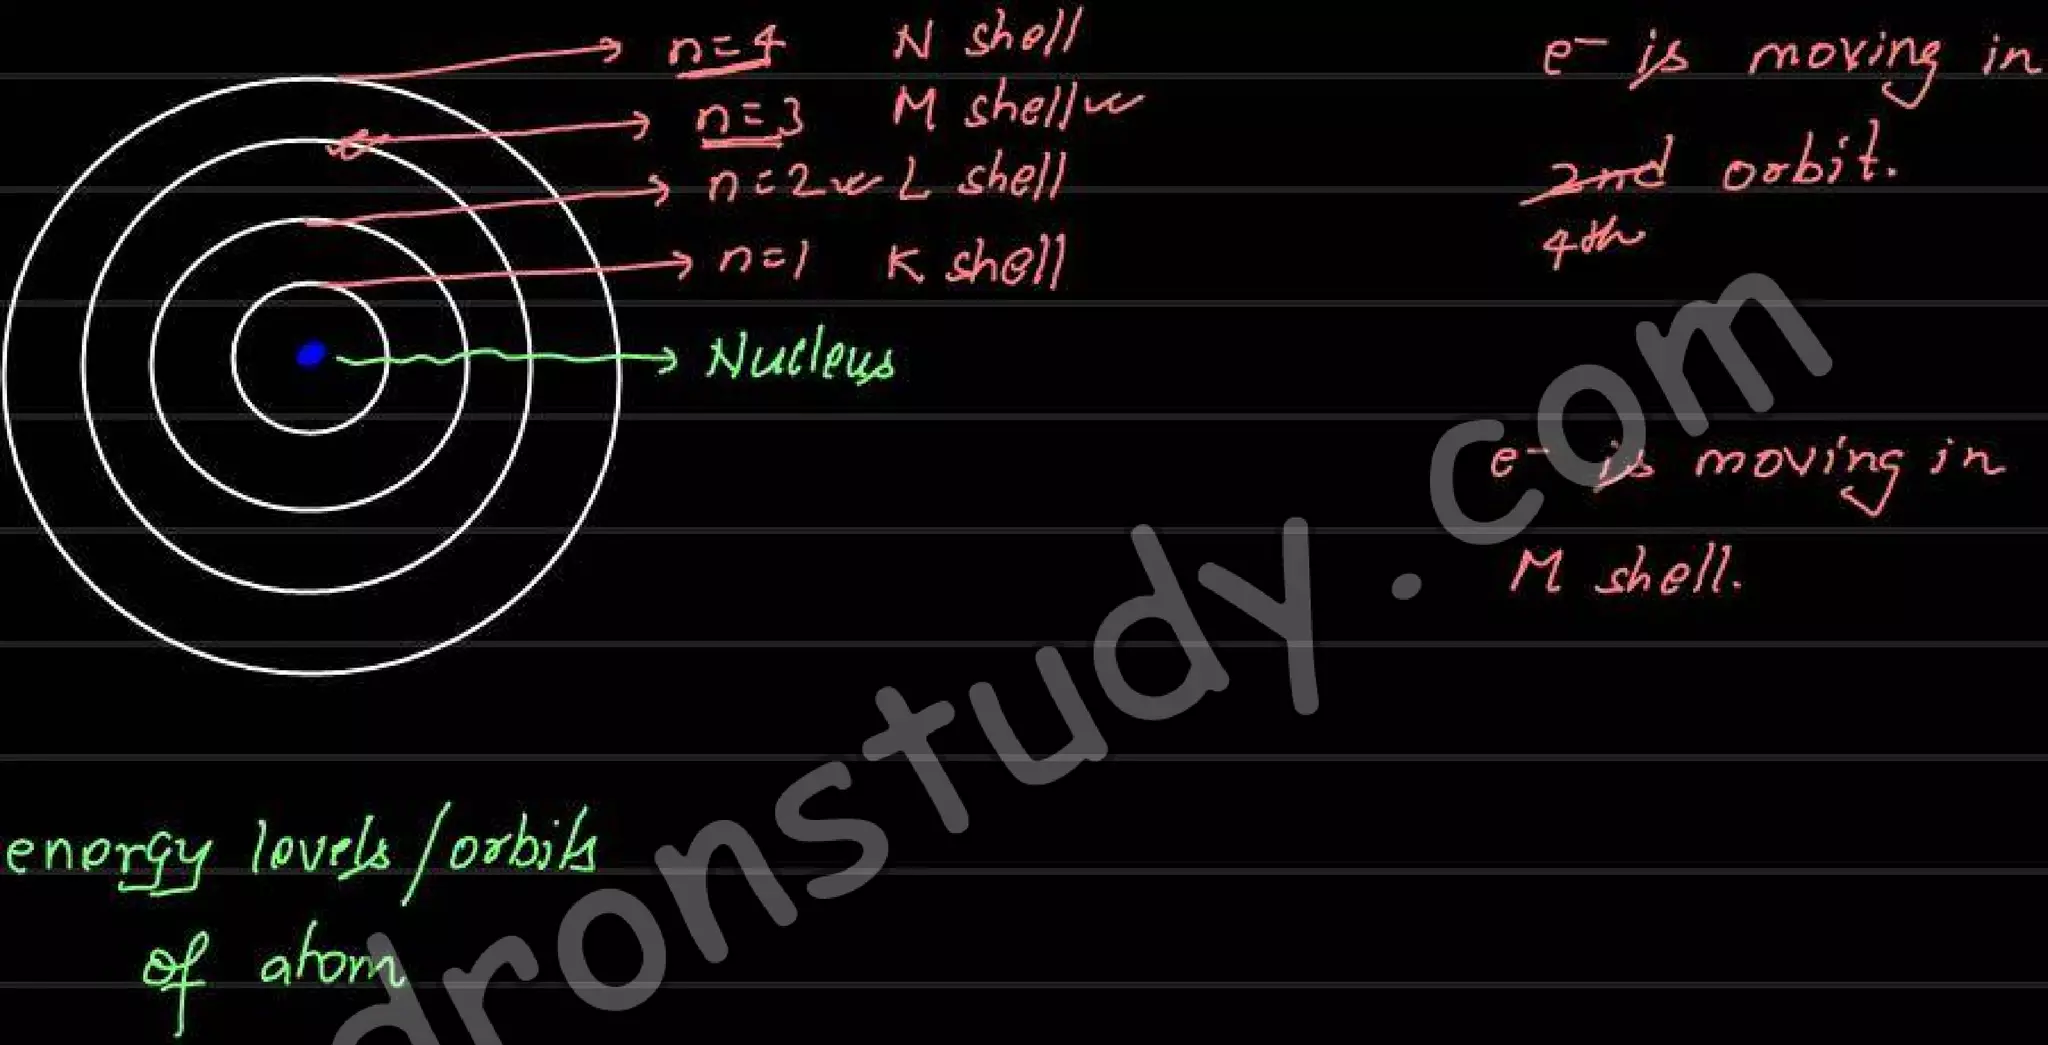 n=4 N shell
n=3 M shell
n=2 L shell
n=1 K shell
Nucleus
e⁻ is moving in
2nd orbit.
4th
e⁻ is moving in
M shell.
energy levels/orbits
of atom
dronstudy.com